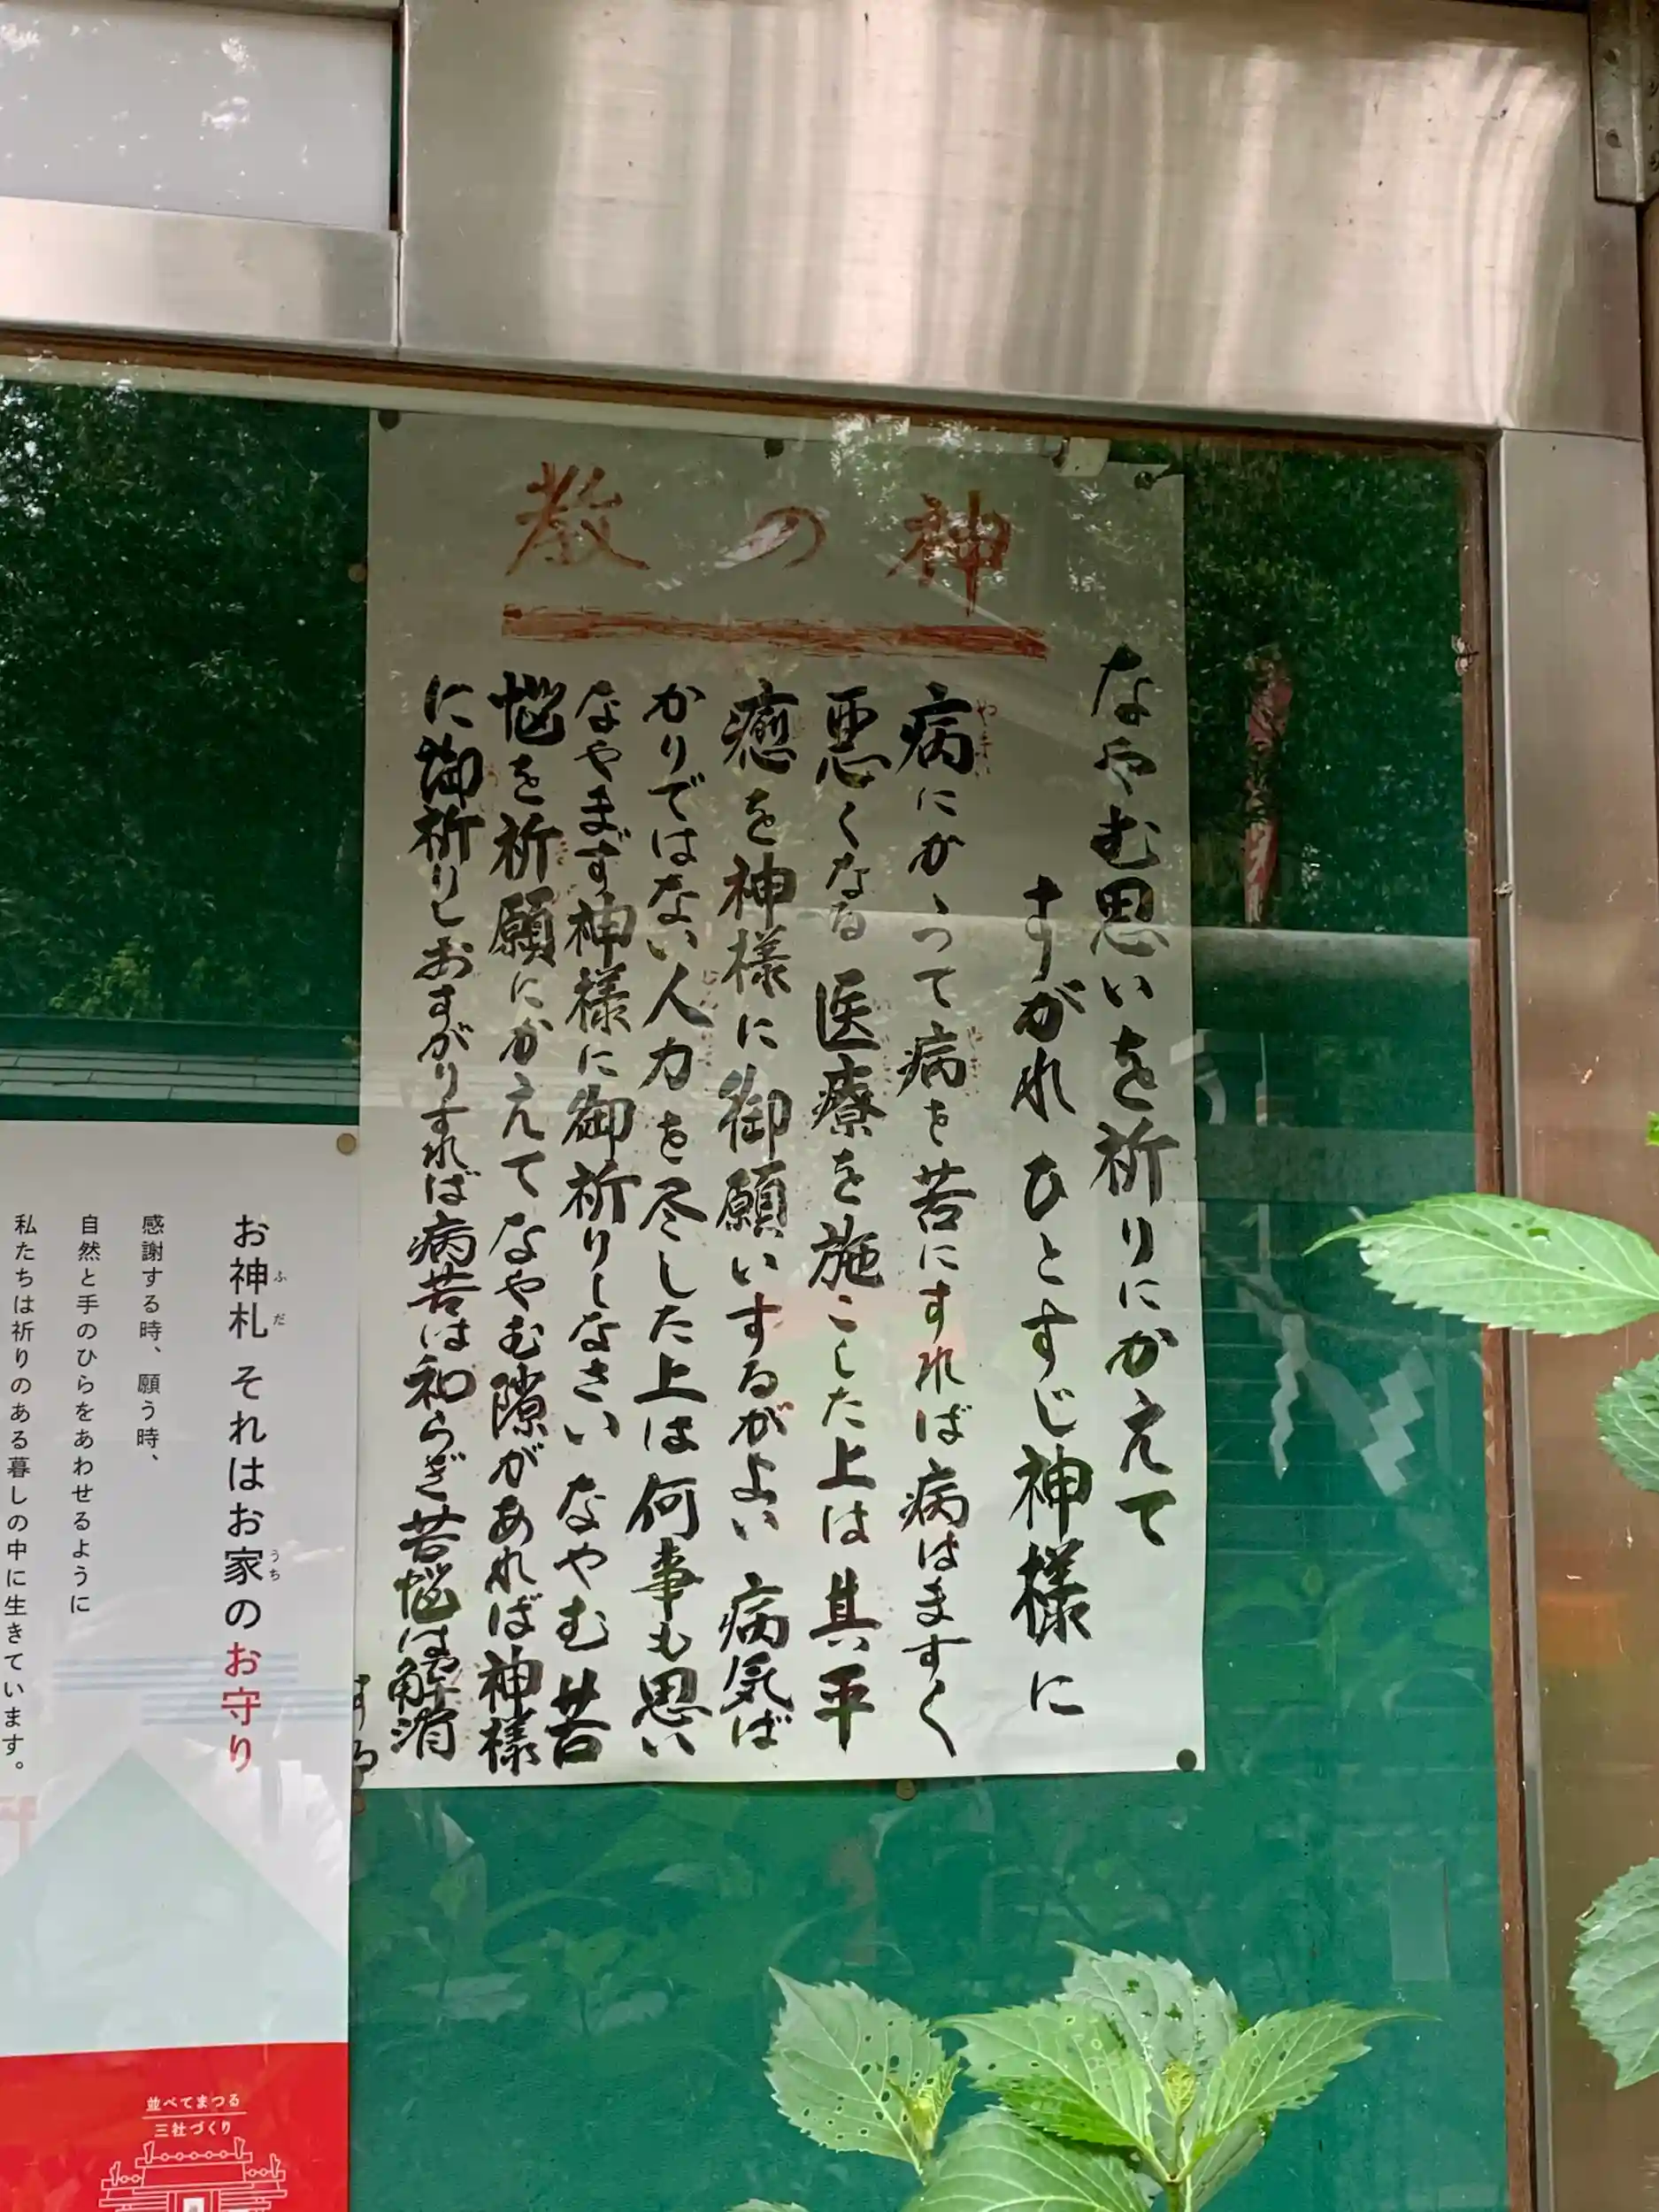 神の教
なやむ思いを祈りにかえて
すがれひとすじ神様に
病にかかって病を苦にすれば病はますく
悪くなる医療を施こした上は其平
癒を神様に御願いするがよい病気ば
かりではない人力を尽した上は何事も思い
なやまず神様に御祈りしなさいなやむ苦
悩を祈願にかえてなやむ隙があれば神様
に御祈りしおすがりすれば病苦は和らぎ苦悩は解消
する
お神札 それはお家のお守り
感謝する時、願う時、
自然と手のひらをあわせるように
私たちは祈りのある暮しの中に生きています。
並べてまつる
三社づくり